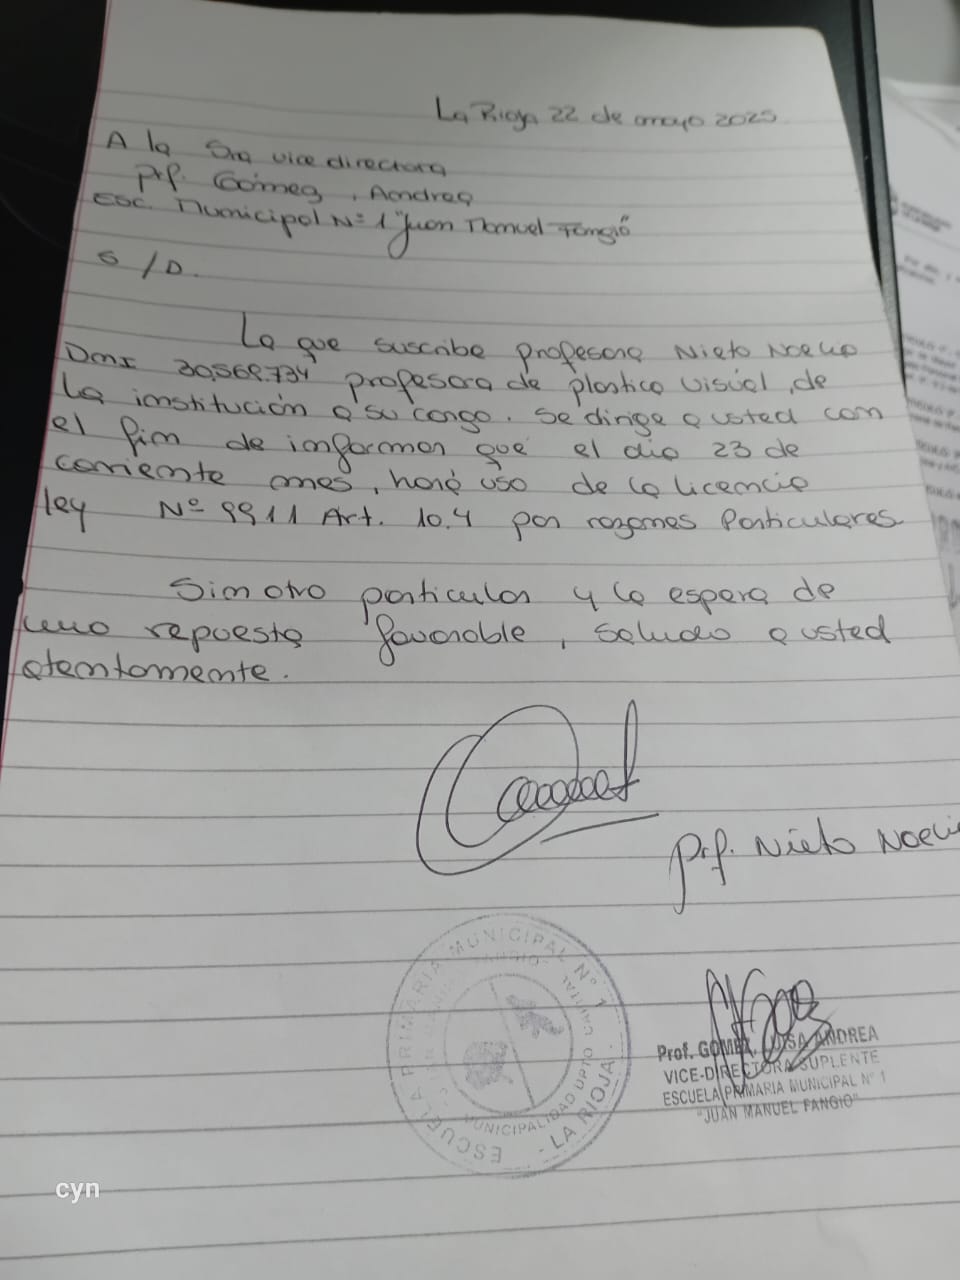 La Rioja 22 de mayo 2025
A la Sra vice directora
Prf. Gómez, Andrea
Esc. Municipal Nº 1 "Juan Manuel Fangio"
S / D.
La que suscribe profesora Nieto Noelia
DNI 30.569.734 profesora de plastica visual, de
la institución a su cargo. Se dirige a usted con
el fin de informar que el dia 23 de
corriente mes, haré uso de la licencia
ley Nº 9911 Art. 10.4 por razones Particulares
Sin otro particular y la espera de
una repuesta favorable, saludo a usted
atentamente.
Prf. Nieto Noelia
ESCUELA PRIMARIA MUNICIPAL Nº 1
MUNICIPALIDAD DPTO CAPITAL
- LA RIOJA -
Prof. GOMEZ, LUISA ANDREA
VICE-DIRECTORA SUPLENTE
ESCUELA PRIMARIA MUNICIPAL Nº 1
"JUAN MANUEL FANGIO"
cyn